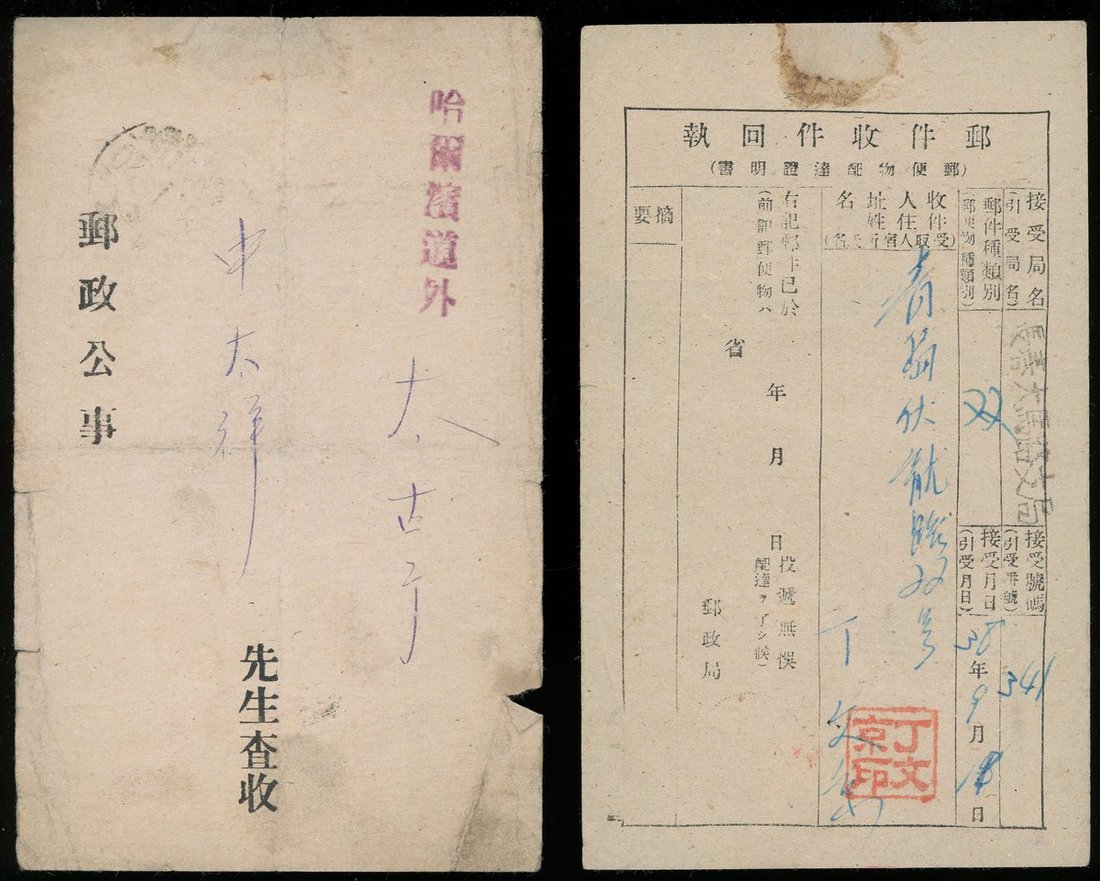 哈爾濱道外
太古
中太祥
先生查收
郵政公事
郵件收件回執
(郵便物配達證明書)
接受局名
(引受局名)
接受號碼
(引受番號)
341
郵件種類別
(郵便物種類別)
双
接受月日
(引受月日)
38年9月日
收件人住址姓名
丁文
丁文京印
右記郵件已於
(前記郵便物ハ
省
年
月
日
投遞無悞
配達ヲ了シ候)
郵政局
摘要